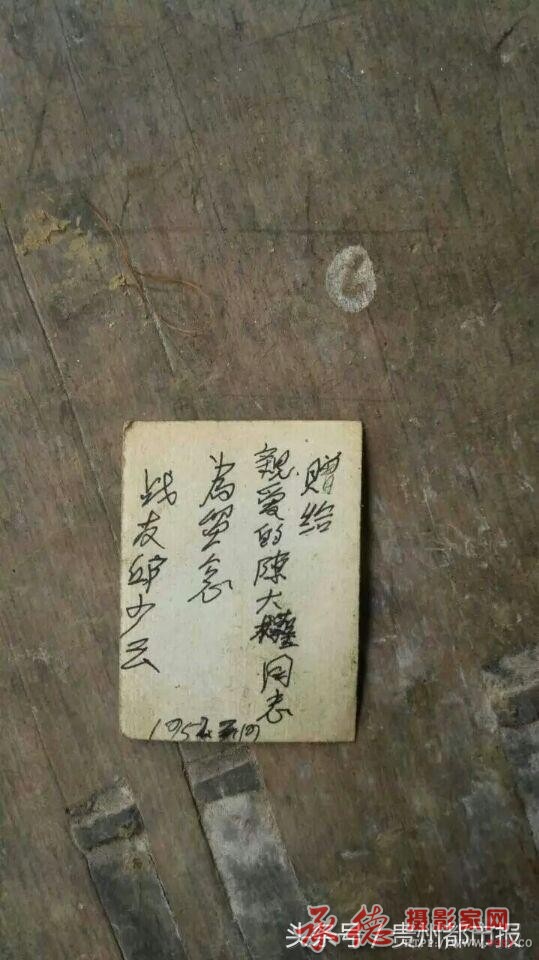 赠给
亲爱的陈大權同志
為留念
战友邱少云
承德摄影家网
头条号 / 贵州都市报